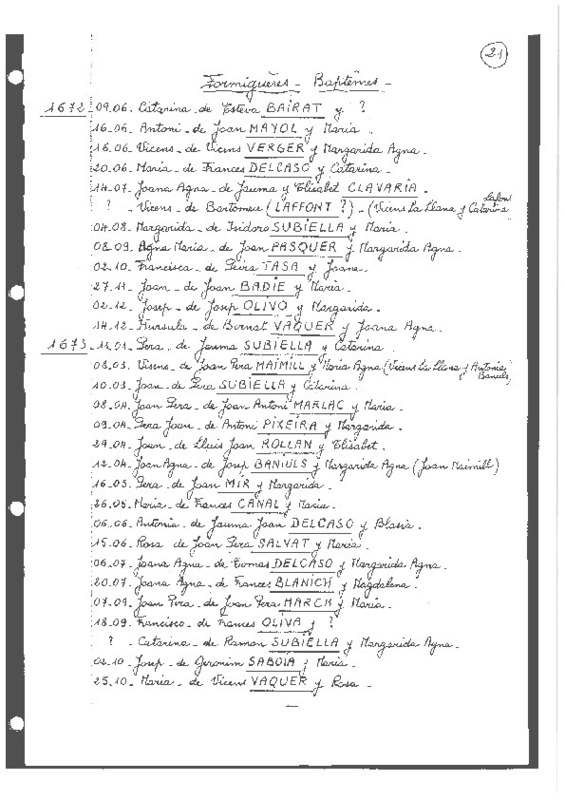 21
Formiguères - Baptêmes -
1672 09.06. Catarina - de Esteva BAIRAT y ?
16.06. Antoni - de Joan MAYOL y Maria .
16.06. Vicens - de Vicens VERGER y Margarida Agna .
20.06. Maria - de Frances DELCASO y Catarina -
14.07. Joana Agna - de Jauma y Elisabet CLAVARIA .
? - Vicens - de Bartomeu (LAFFONT ?) - (Vicens La Llana y Catarina Lafon)
04.08. Margarida - de Isidoro SUBIELLA y Maria .
08.09. Agna Maria - de Joan PASQUER y Margarida Agna .
02.10. Francisca - de Peira TASA y Joana .
27.11. Joan - de Joan BADIE y Maria .
02.12. Josep - de Josep OLIVO y Margarida .
14.12. Hursula - de Bernat VAQUER y Joana Agna .
1673 11.01. Pera - de Jauma SUBIELLA y Catarina .
08.03. Vicens - de Joan Pera MAIMILL y Maria Agna (Vicens La Llana y Antonia Baniuls)
10.03. Joan - de Pera SUBIELLA y Catarina .
08.04. Joan Pera - de Joan Antoni MARLAC y Maria .
09.04. Pera Joan - de Antoni PIXEIRA y Margarida .
29.04. Joan - de Lluis Joan ROLLAN y Elisabet .
12.04. Joan Agna - de Josep BANIULS y Margarida Agna (Joan Maimill)
16.05. Pera - de Joan MIR y Margarida .
26.05. Maria - de Frances CANAL y Maria .
06.06. Antonia - de Jauma Joan DELCASO y Blasia .
15.06. Rosa de Joan Pera SALVAT y Maria .
06.07. Joana Agna - de Tomas DELCASO y Margarida Agna .
20.07. Joana Agna - de Frances BLANICH y Magdalena .
07.09. Joan Pera - de Joan Pera MARCH y Maria .
18.09. Francisco - de Frances OLIVA y ?
? - Catarina - de Ramon SUBIELLA y Margarida Agna .
02.10. Josep - de Geronim SABOIA y Maria .
25.10. Maria - de Vicens VAQUER y Rosa -